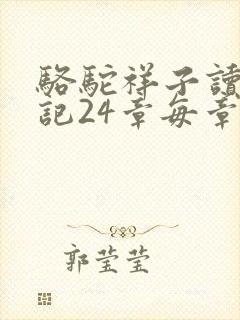 駱駝祥子讀
記24章每章
郭莹莹